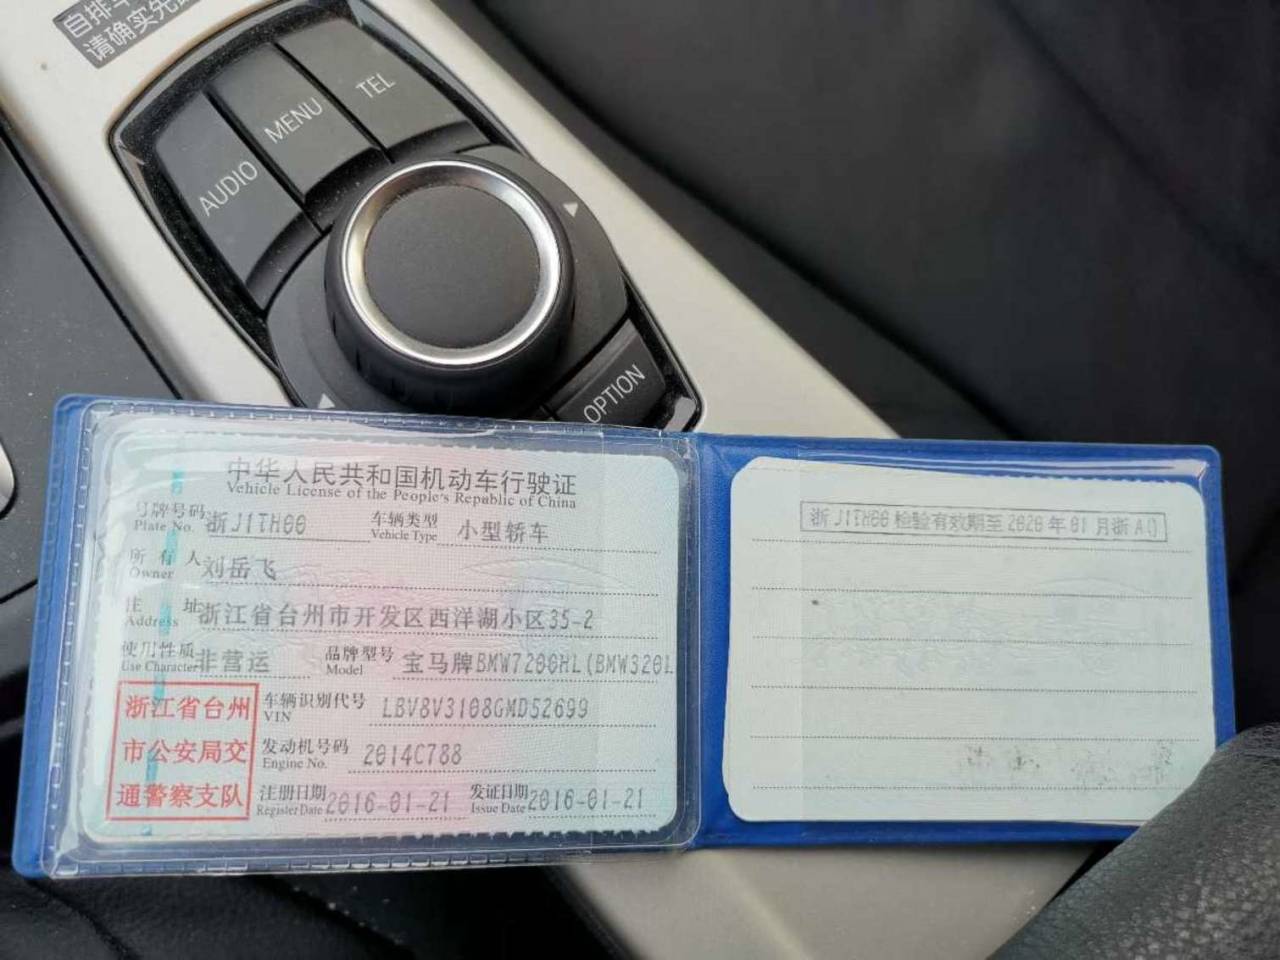 自排
请确实先
AUDIO
MENU
TEL
OPTION
中华人民共和国机动车行驶证
Vehicle License of the People's Republic of China
号牌号码 浙J1TH00 车辆类型 小型轿车
Plate No. Vehicle Type
所有人 刘岳飞
Owner
住址 浙江省台州市开发区西洋湖小区35-2
Address
使用性质 非营运 品牌型号 宝马牌BMW7200HL(BMW320L
Use Character Model
浙江省台州
市公安局交
通警察支队
车辆识别代号 LBV8V3108GMD52699
VIN
发动机号码 2014C788
Engine No.
注册日期 2016-01-21 发证日期 2016-01-21
Register Date Issue Date
浙J1TH00检验有效期至2020年01月浙A()